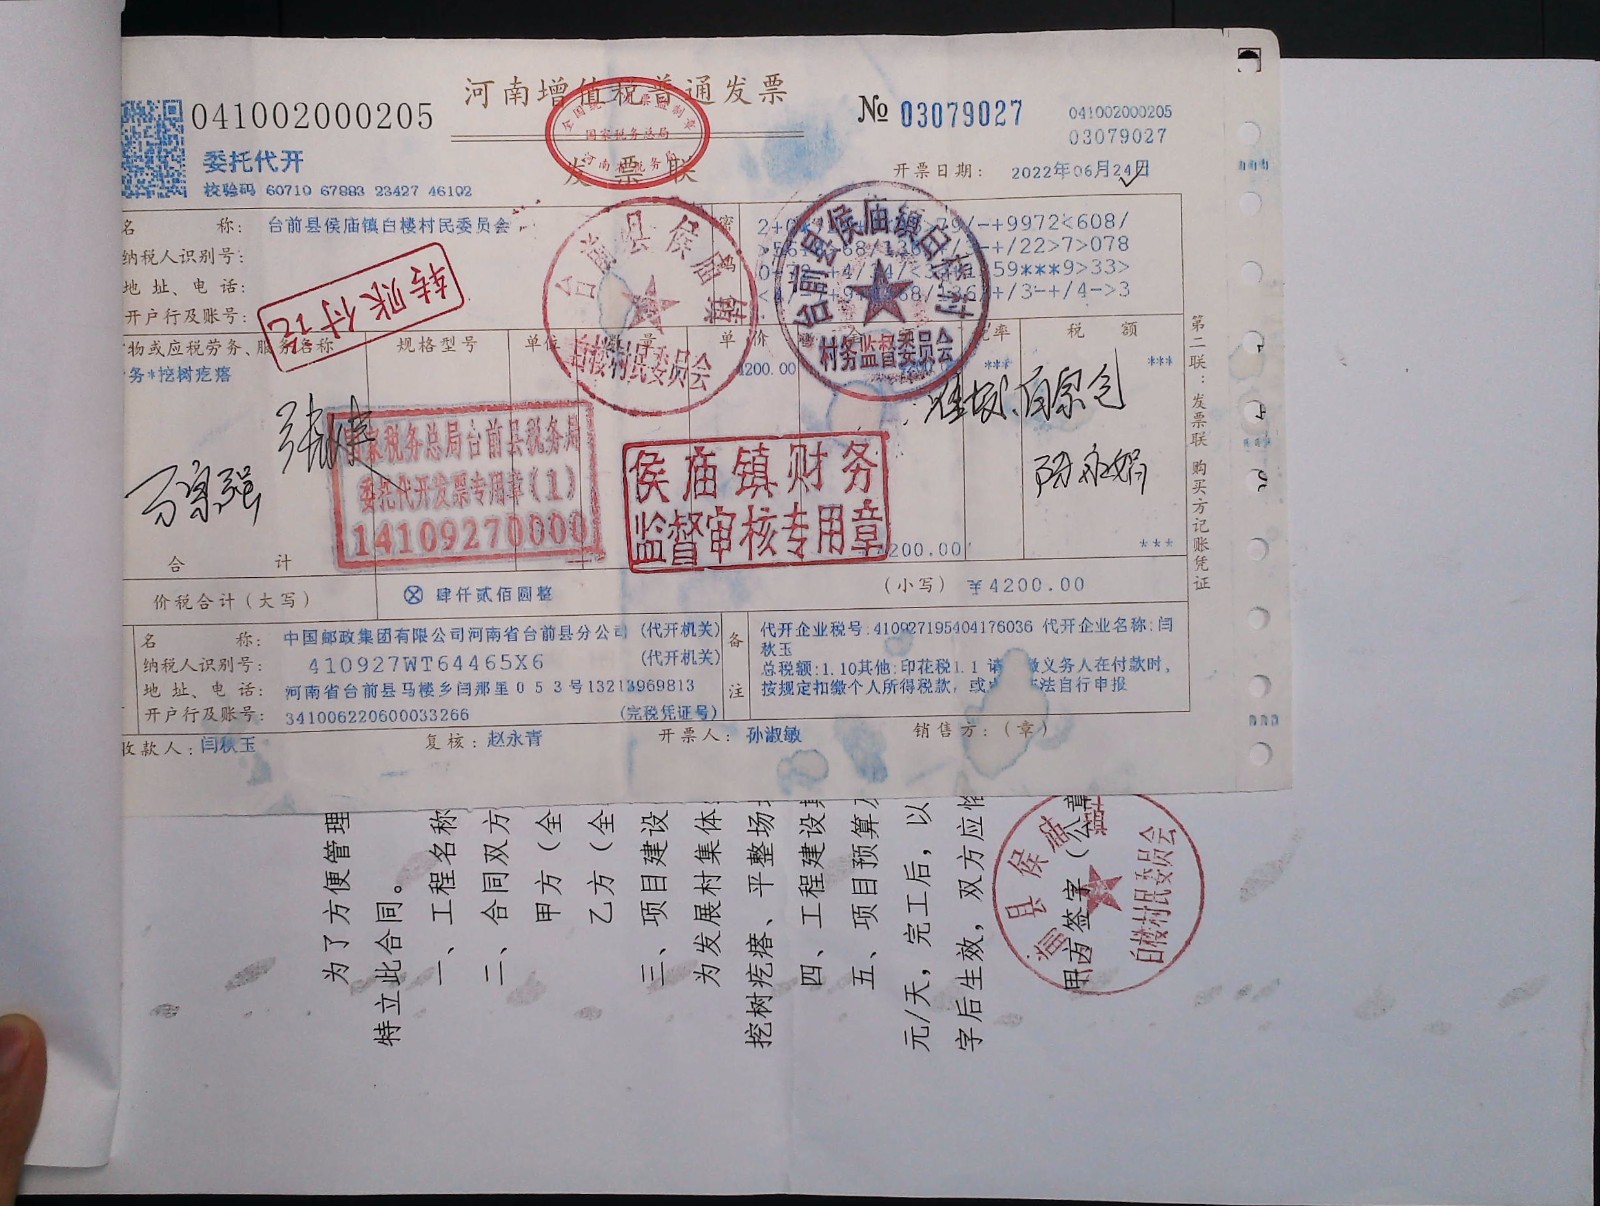 河南增值税普通发票
发票联
041002000205
委托代开
校验码 60710 67883 23427 46102
№ 03079027
041002000205
03079027
开票日期： 2022年06月24日
全国统一发票监制章
国家税务总局
河南省税务局
名 称： 台前县侯庙镇白楼村民委员会
纳税人识别号：
地 址、电 话：
开户行及账号：
转账付讫
台前县侯庙镇
白楼村民委员会
台前县侯庙镇白楼村
村务监督委员会
物或应税劳务、服务名称 规格型号 单位 数 量 单 价 金 额 税率 税 额
务*挖树疙瘩 4200.00 *** ***
国家税务总局台前县税务局
委托代开发票专用章(1)
14109270000
侯庙镇财务
监督审核专用章
合 计 ***
价税合计（大写） ⊗ 肆仟贰佰圆整 （小写） ¥4200.00
名 称： 中国邮政集团有限公司河南省台前县分公司 (代开机关)
纳税人识别号： 410927WT64465X6 (代开机关)
地 址、电 话： 河南省台前县马楼乡闫那里053号13213969813
开户行及账号： 341006220600033266 (完税凭证号)
备注
代开企业税号:410927195404176036 代开企业名称:闫
秋玉
总税额:1.10其他:印花税1.1 请 缴义务人在付款时,
按规定扣缴个人所得税款, 或 法自行申报
收款人：闫秋玉 复核：赵永青 开票人：孙淑敏 销售方：（章）
第二联：发票联 购买方记账凭证
为了方便管理
特立此合同。
一、工程名称
二、合同双方
甲方（全
乙方（全
三、项目建设
为发展村集体
挖树疙瘩、平整场
四、工程建设
五、项目预算
元/天，完工后，以
字后生效，双方应
签字（公章
白楼村民委员会